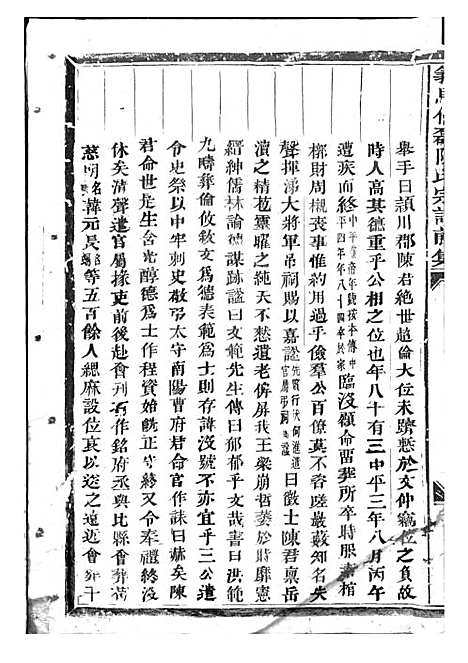 陳氏宗譜前集
舉手曰頴川郡陳君絶世超倫大位未躋慙於文仲竊位之負故
時人高其德重乎公相之位也年八十有三中平三年八月丙午
遭疾而終平四年年八十四卒於家臨沒顧命畱葬所卒時服素棺
槨財周櫬喪事惟約用過乎儉羣公百僚莫不咨嗟巖藪知名失
聲揮涕大將軍弔祠賜以嘉諡先賢行狀何進遣官屬弔祠為諡曰徵士陳君稟岳
瀆之精苞靈曜之純天不憖遺老俾屏我王梁崩哲萎於時靡憲
縉紳儒林論德謀跡諡曰文範先生傳曰郁郁乎文哉書曰洪範
九疇彝倫攸敘文為德表範為士則存誨沒號不亦宜乎三公遣
令史祭以中牢刺史敬弔太守南陽曹府君命官作誄曰赫矣陳
君命世是生含光醇德為士作程資始旣正守終又令奉禮終沒
休矣清聲遣官屬掾吏前後赴會刊石作銘府丞與比縣會葬荀
慈明名爽韓元長名融等五百餘人緦麻設位哀以送之遠近會葬千